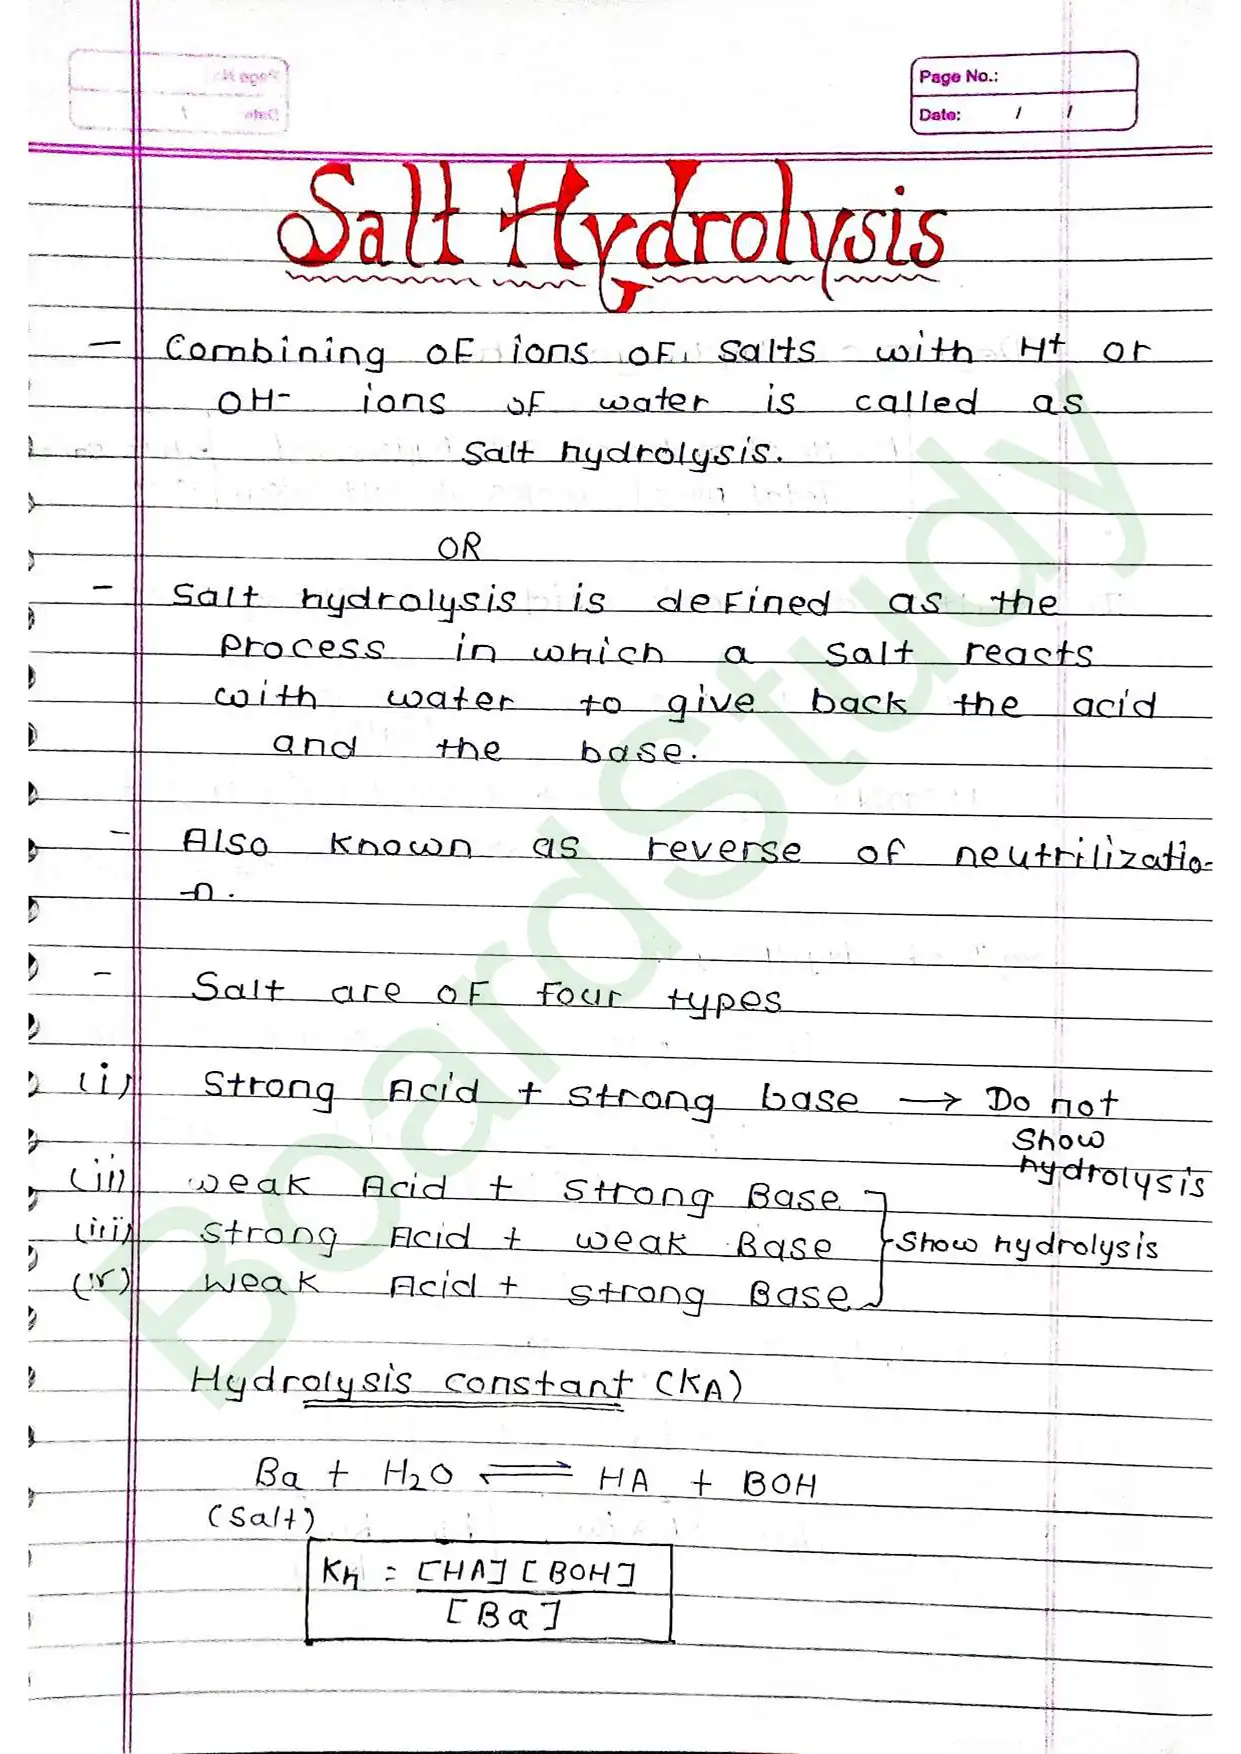 Page No.:
Date: / /
Salt Hydrolysis
- Combining of ions of salts with H+ or
OH- ions of water is called as
Salt hydrolysis.
OR
- Salt hydrolysis is defined as the
Process in which a salt reacts
with water to give back the acid
and the base.
- Also known as reverse of neutrilizatio-
-n.
- Salt are of four types
(i) Strong Acid + strong base → Do not
Show
hydrolysis
(ii) weak Acid + Strong Base
(iii) Strong Acid + weak Base } Show hydrolysis
(iv) Weak Acid + strong Base
Hydrolysis constant (KA)
Ba + H2O ⇌ HA + BOH
(Salt)
Kh = [HA] [BOH]
[Ba]
BoardStudy